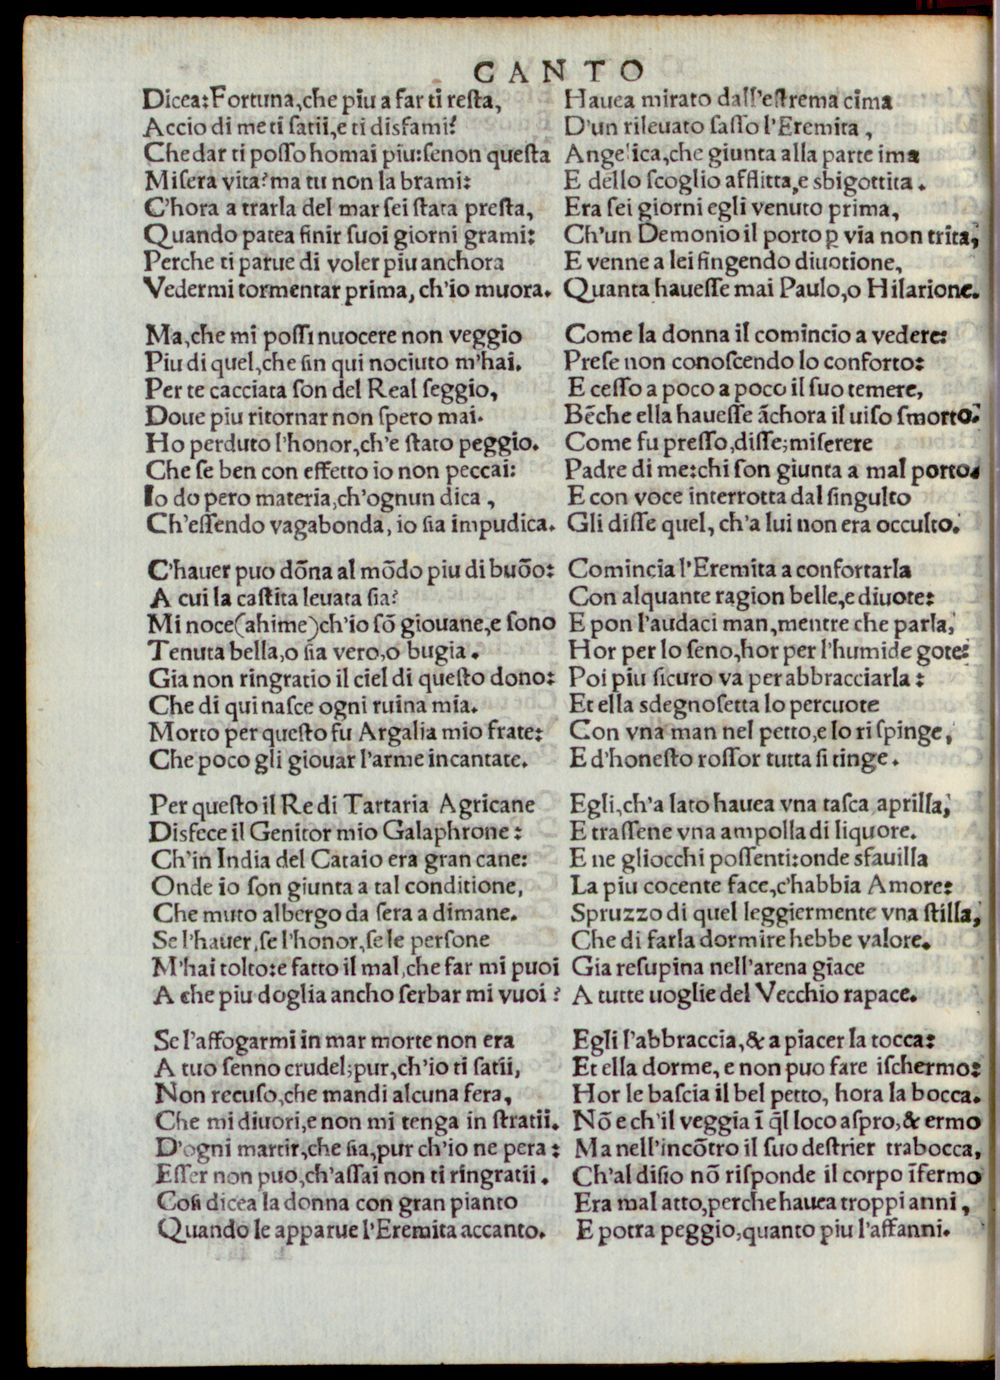 CANTO
Dicea: Fortuna, che piu a far ti resta,
Accio di me ti satii, e ti disfami?
Che dar ti posso homai piu: senon questa
Misera vita? ma tu non la brami:
C'hora a trarla del mar sei stata presta,
Quando patea finir suoi giorni grami:
Perche ti parue di voler piu anchora
Vedermi tormentar prima, ch'io muora.
Ma, che mi possi nuocere non veggio
Piu di quel, che sin qui nociuto m'hai.
Per te cacciata son del Real seggio,
Doue piu ritornar non spero mai.
Ho perduto l'honor, ch'e stato peggio.
Che se ben con effetto io non peccai:
Io do pero materia, ch'ognun dica,
Ch'essendo vagabonda, io sia impudica.
C'hauer puo dõna al mõdo piu di buõo:
A cui la castita leuata sia?
Mi noce (ahime) ch'io sõ giouane, e sono
Tenuta bella, o sia vero, o bugia.
Gia non ringratio il ciel di questo dono:
Che di qui nasce ogni ruina mia.
Morto per questo fu Argalia mio frate:
Che poco gli giouar l'arme incantate.
Per questo il Re di Tartaria Agricane
Disfece il Genitor mio Galaphrone:
Ch'in India del Cataio era gran cane:
Onde io son giunta a tal conditione,
Che muto albergo da sera a dimane.
Se l'hauer, se l'honor, se le persone
M'hai tolto: e fatto il mal, che far mi puoi
A che piu doglia ancho serbar mi vuoi?
Se l'affogarmi in mar morte non era
A tuo senno crudel; pur, ch'io ti satii,
Non recuso, che mandi alcuna fera,
Che mi diuori, e non mi tenga in stratii.
D'ogni martir, che sia, pur ch'io ne pera:
Esser non puo, ch'assai non ti ringratii.
Cosi dicea la donna con gran pianto
Quando le apparue l'Eremita accanto.
Hauea mirato dall'estrema cima
D'un rileuato sasso l'Eremita,
Angelica, che giunta alla parte ima
E dello scoglio afflitta, e sbigottita.
Era sei giorni egli venuto prima,
Ch'un Demonio il porto ꝑ via non trita,
E venne a lei fingendo diuotione,
Quanta hauesse mai Paulo, o Hilarione.
Come la donna il comincio a vedere:
Prese non conoscendo lo conforto:
E cesso a poco a poco il suo temere,
Bẽche ella hauesse ãchora il uiso smorto.
Come fu presso, disse; miserere
Padre di me: chi son giunta a mal porto.
E con voce interrotta dal singulto
Gli disse quel, ch'a lui non era occulto.
Comincia l'Eremita a confortarla
Con alquante ragion belle, e diuote:
E pon l'audaci man, mentre che parla,
Hor per lo seno, hor per l'humide gote:
Poi piu sicuro va per abbracciarla:
Et ella sdegnosetta lo percuote
Con vna man nel petto, e lo rispinge,
E d'honesto rossor tutta si tinge.
Egli, ch'a lato hauea vna tasca aprilla,
E trassene vna ampolla di liquore.
E ne gliocchi possenti: onde sfauilla
La piu cocente face, c'habbia Amore:
Spruzzo di quel leggiermente vna stilla,
Che di farla dormire hebbe valore.
Gia resupina nell'arena giace
A tutte uoglie del Vecchio rapace.
Egli l'abbraccia, & a piacer la tocca:
Et ella dorme, e non puo fare ischermo:
Hor le bascia il bel petto, hora la bocca.
Nõ e ch'il veggia ĩ q̃l loco aspro, & ermo
Ma nell'incõtro il suo destrier trabocca,
Ch'al disio nõ risponde il corpo ĩfermo
Era mal atto, perche hauea troppi anni,
E potra peggio, quanto piu l'affanni.